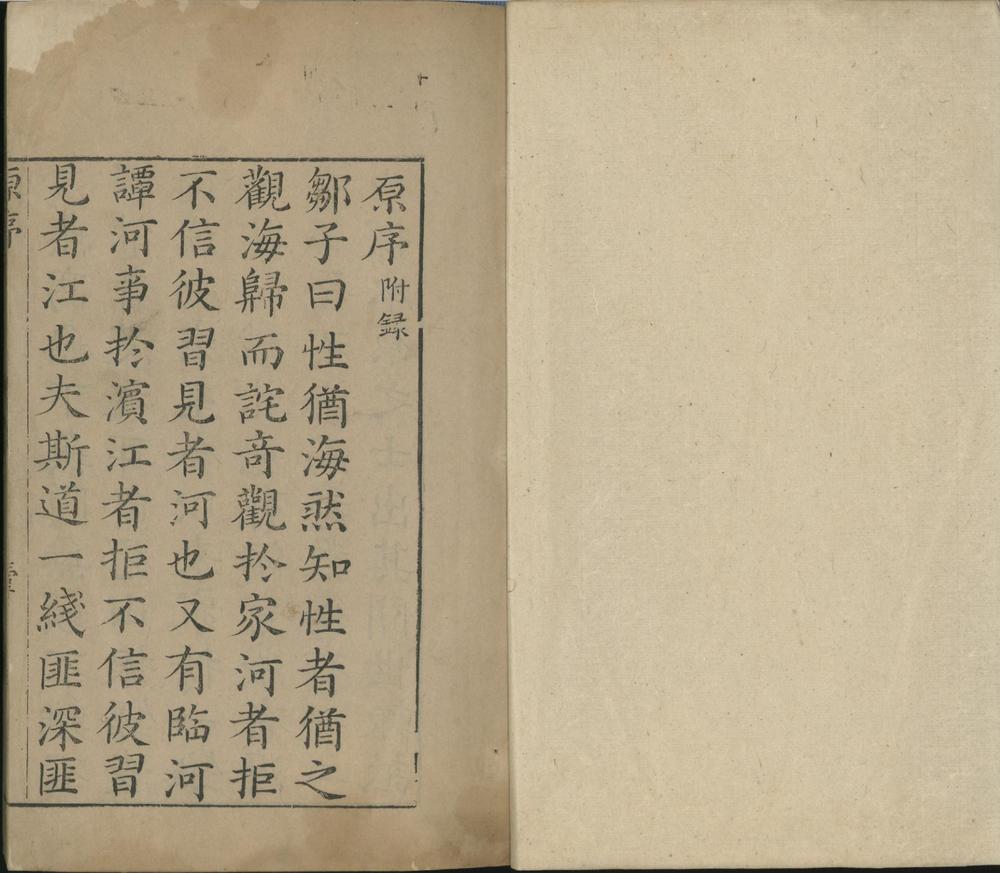 原序附録
鄒子曰性猶海然知性者猶之
觀海歸而詫奇觀於家河者拒
不信彼習見者河也又有臨河
譚河事於濱江者拒不信彼習
見者江也夫斯道一綫匪深匪
原序